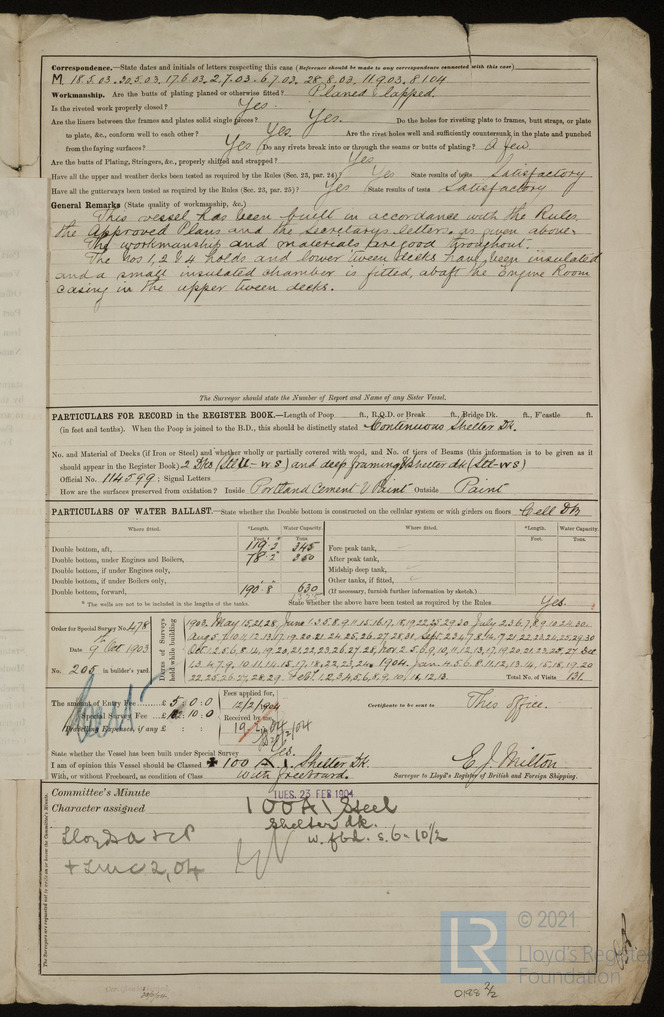 Correspondence.—State dates and initials of letters respecting this case (Reference should be made to any correspondence connected with this case)
M 18.5.03. 30.5.03. 17.6.03. 2.7.03. 6.7.03. 28.8.03. 11.9.03. 8.1.04
Workmanship. Are the butts of plating planed or otherwise fitted? Planed & lapped.
Is the riveted work properly closed? Yes.
Are the liners between the frames and plates solid single pieces? Yes. Do the holes for riveting plate to frames, butt straps, or plate
to plate, &c., conform well to each other? Yes. Are the rivet holes well and sufficiently countersunk in the plate and punched
from the faying surfaces? Yes Do any rivets break into or through the seams or butts of plating? A few
Are the butts of Plating, Stringers, &c., properly shifted and strapped? Yes
Have all the upper and weather decks been tested as required by the Rules (Sec. 23, par. 24) Yes State results of tests Satisfactory
Have all the gutterways been tested as required by the Rules (Sec. 23, par. 25)? Yes State results of tests Satisfactory
General Remarks (State quality of workmanship, &c.)
This vessel has been built in accordance with the Rules,
the Approved Plans and the Secretarys letters, as given above.
The workmanship and materials are good throughout.
The Nos 1, 2 & 4 holds and lower 'tween decks have been insulated
and a small insulated chamber is fitted, abaft the Engine Room
casing in the upper tween decks.
The Surveyor should state the Number of Report and Name of any Sister Vessel.
PARTICULARS FOR RECORD in the REGISTER BOOK.—Length of Poop ft., R.Q.D. or Break ft., Bridge Dk. ft., F'castle ft.
(in feet and tenths). When the Poop is joined to the B.D., this should be distinctly stated Continuous Shelter Dk.
No. and Material of Decks (if Iron or Steel) and whether wholly or partially covered with wood, and No. of tiers of Beams (this information is to be given as it
should appear in the Register Book) 2 Dks and deep framing & Shelter dk
Official No. 114599; Signal Letters
How are the surfaces preserved from oxidation? Inside Portland Cement & Paint Outside Paint
PARTICULARS OF WATER BALLAST.—State whether the Double bottom is constructed on the cellular system or with girders on floors Cell DB
Where fitted. *Length. Water Capacity. Where fitted. *Length. Water Capacity.
Feet. Tons Feet. Tons.
Double bottom, aft, 119.2 345 Fore peak tank,
Double bottom, under Engines and Boilers, 78.2 After peak tank,
Double bottom, if under Engines only, Midship deep tank,
Double bottom, if under Boilers only, Other tanks, if fitted,
Double bottom, forward, 190.8 630 (If necessary, furnish further information by sketch.)
* The wells are not to be included in the lengths of the tanks. State whether the above have been tested as required by the Rules Yes.
Order for Special Survey No. 478
Date 9th Oct 1903
No. 205 in builder's yard.
Dates of Surveys held while building
1903. May 15.21.28. June 1.3.5.8.9.11.15.16.17.18.19.22.25.29.30. July 2.3.6.7.8.9.10.24.30.
Total No. of Visits 131
The amount of Entry Fee £ 5 : 0 : 0
Special Survey Fee
Travelling Expenses, if any £
Fees applied for,
12/2/1904
Received by me,
Certificate to be sent to This office.
State whether the Vessel has been built under Special Survey Yes.
I am of opinion this Vessel should be Classed + 100 A 1. Shelter Dk.
With, or without Freeboard, as condition of Class With freeboard.
E. J. Milton
Surveyor to Lloyd's Register of British and Foreign Shipping.
Committee's Minute TUES. 23 FEB 1904
Character assigned 100A1 Steel
Shelter dk.
w. fbd. s. 6-10½
Lloyds A & CP
+ LMC 2,04
The Surveyors are requested not to write on or below the Committee's Minute.
LR © 2021
Lloyd's Register
Foundation
0198 2/2